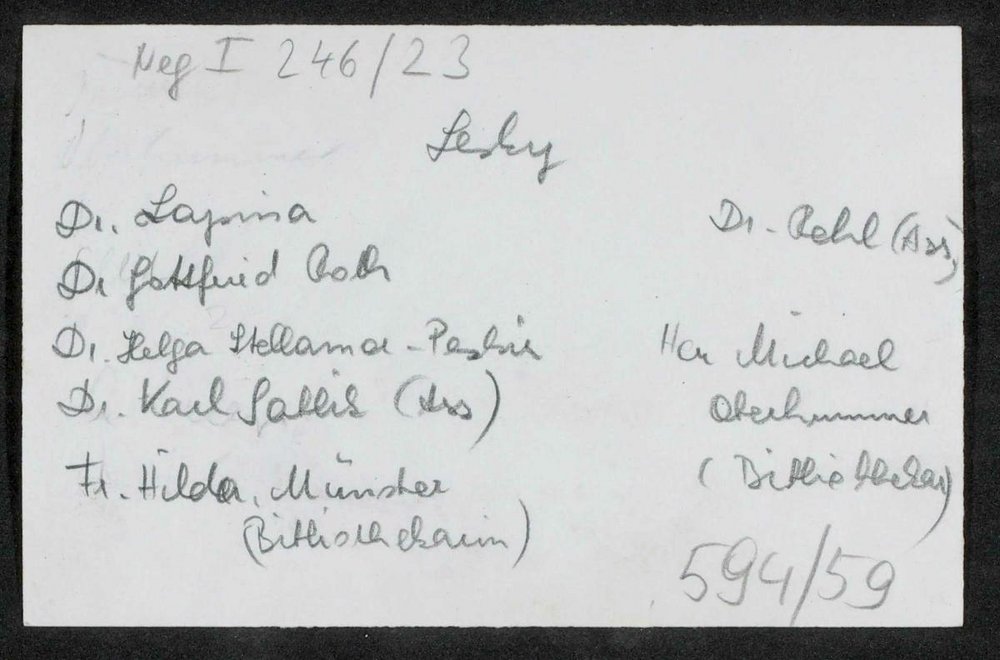 Neg I 246/23
Lesky
Dr. Lapina
Dr. Rohl (Ass)
Dr Gottfried Roth
Dr. Helga Stellamor-Peskir
Herr Michael
Dr. Karl Sablik (Ass)
Oberhummer
Fr. Hilda Münster
(Bibliothekar)
(Bibliothekarin)
594/59